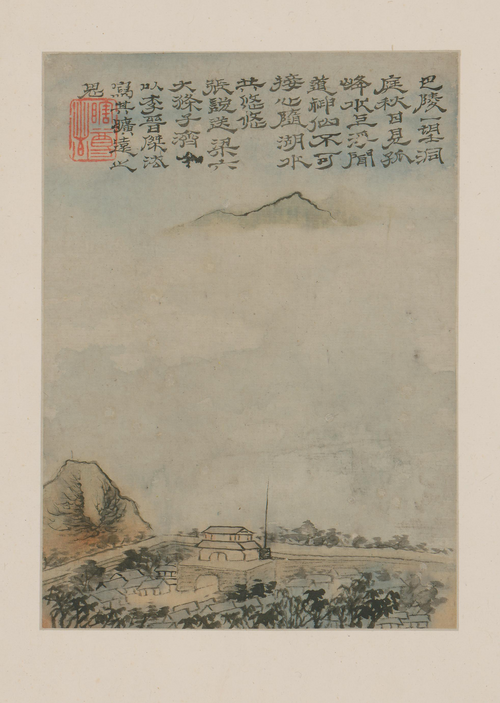 巴陵一望洞
庭秋日見孤
峰水浮聞
道神仙不可
接心隨湖水
共悠悠
張說送梁六
大滌子濟
以李晉傑法
寫其曠遠之
思